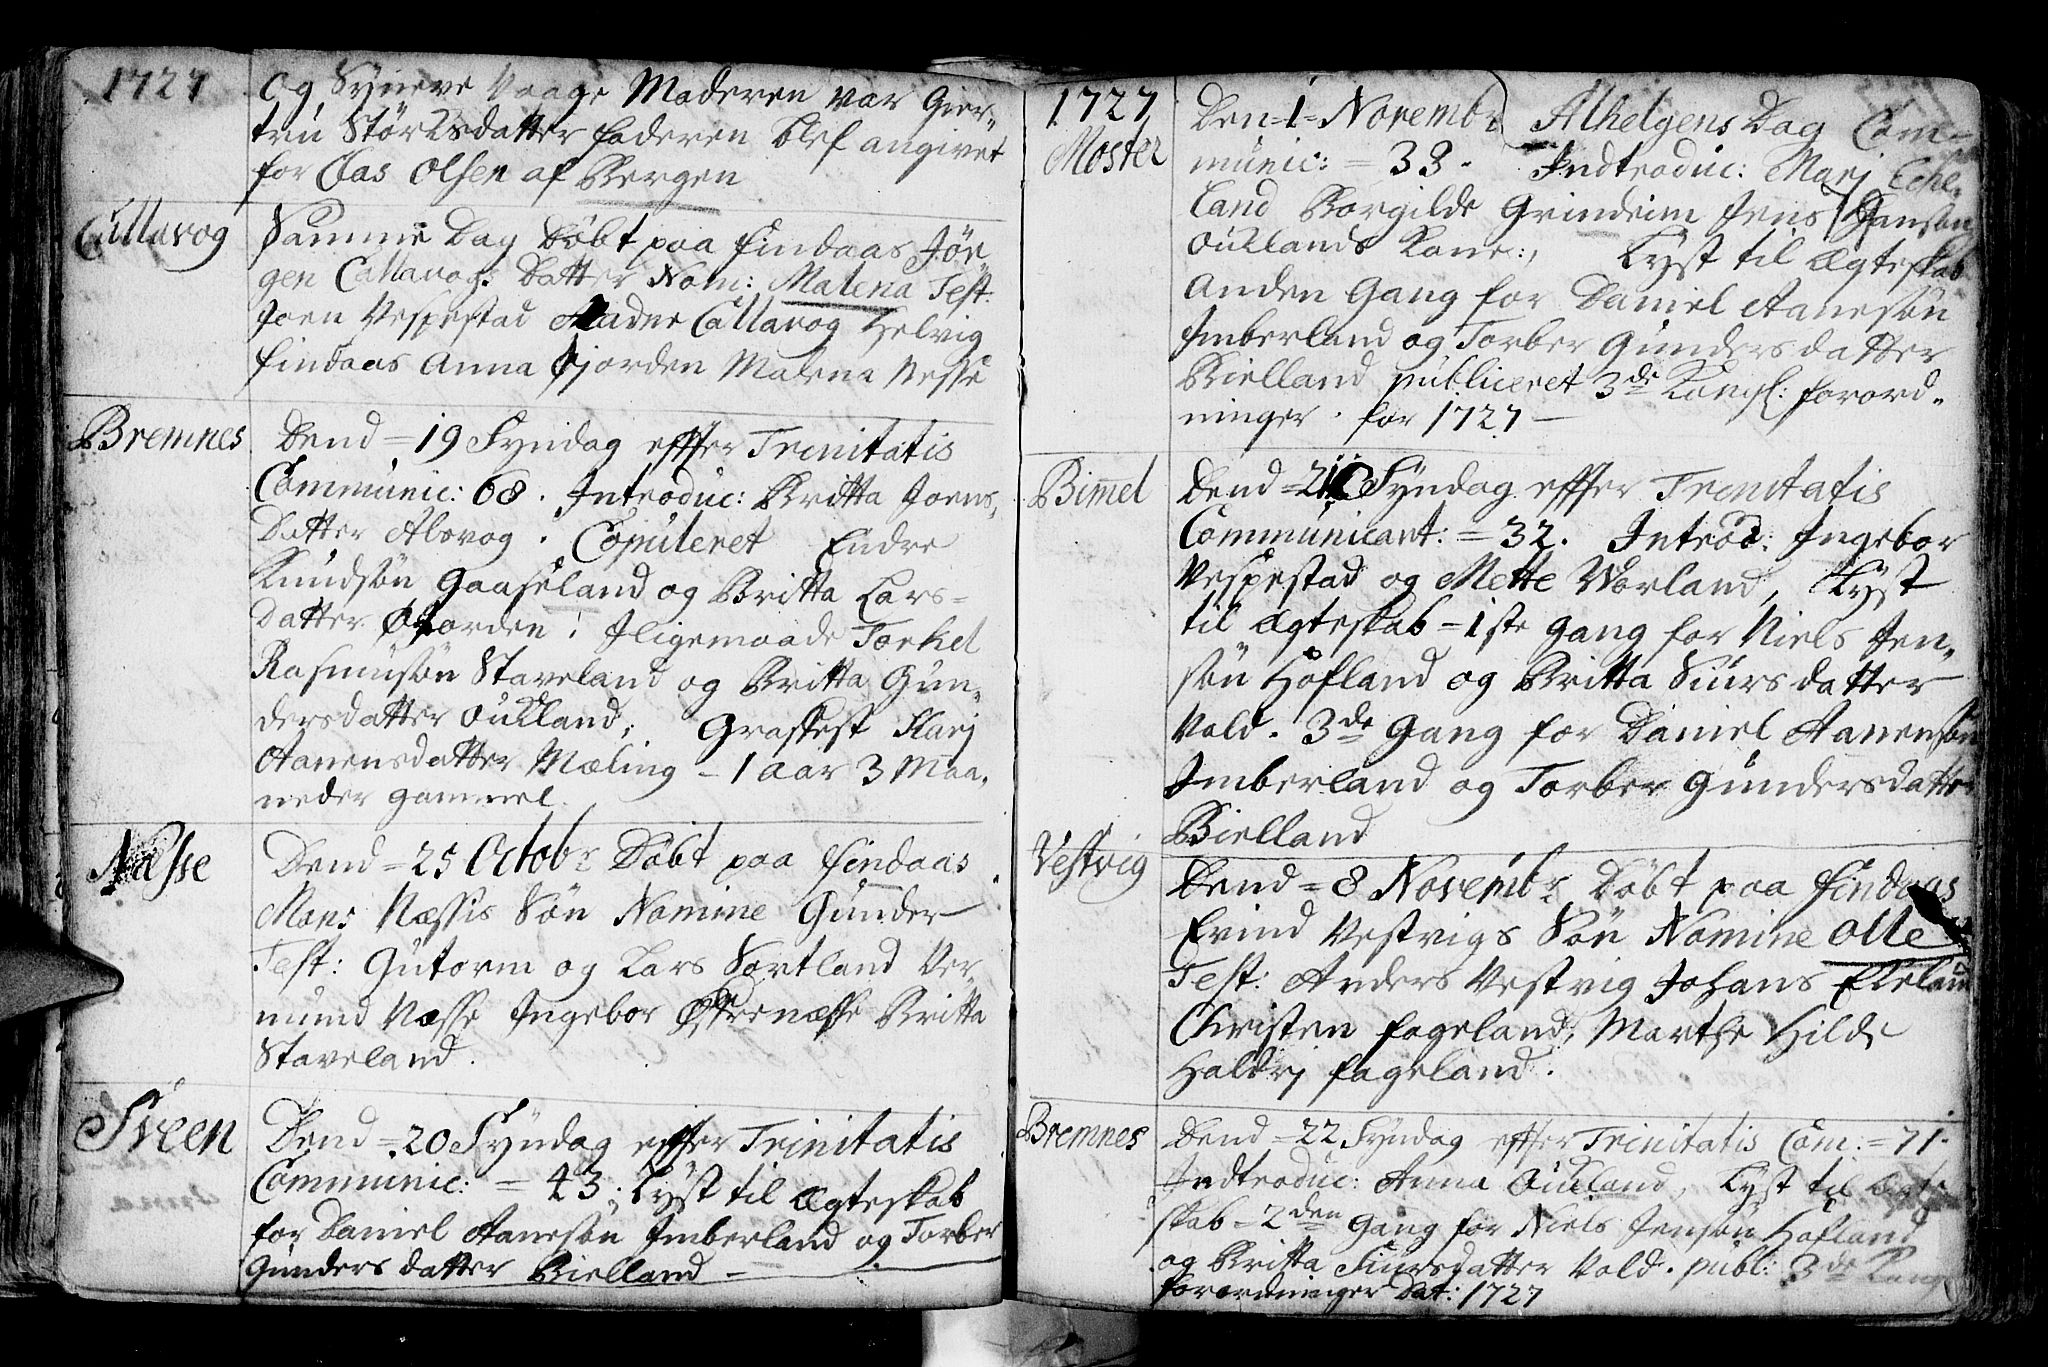 1727
og Syneve Vaage Moderen var Gier-
tru Störksdatter faderen blef angivet
for Clas Olsen af Bergen
Callavog
Samme Dag Döbt paa Findaas Jör-
gen Callavogs Datter Nom: Malena Test:
Joen Vespestad Madne Callavog Helvig
Findaas Anna Fjorden Malena Nesse
Bremnes
Dend = 19 Syndag effter Trinitatis
Communic: 68. Introduc: Britta Joens
Datter Alsvog. Copuleret Endre
Knudsön Gaaseland og Britta Lars-
datter Økorden; Iligemaade Torkel
Rasmusön Staveland og Britta Gun-
dersdatter Oukland; Graffest Marj
Aanensdatter Mæling - 1 aar 3 Maa-
neder gammel.
Næsse
Dend = 25 Octobr Döbt paa Findaas
Mons Næssis Sön Nomine Gunder
Test: Gutorm og Lars Sortland Ver
mund Næsse Ingebor Østrenæsse Britta
Staveland.
Sveen
Dend = 20 Syndag effter Trinitatis
Communic: = 43; Lyst til Ægteskab
for Daniel Aanesön Imberland og Torber
Gunders datter Bielland -
1727
Moster
Den = 1 = Novembr Alhelgens Dag Com-
munic: = 33. Indtroduc: Marj Eche-
land Borgilde Grindeim Jens Hansön
Ouklands Kone:, Lyst til Ægteskab
Anden Gang for Daniel Aanesön
Imberland og Torber Gunders datter
Bielland publiceret 3de Kongl: forord-
ninger. for 1727 -
Bimmel
Dend = 21 Syndag effter Trinitatis
Communicant: = 32. Introd: Ingebor
Vespestad og Mette Vorland, Lyst
til Ægteskab = 1ste Gang for Niels Jen-
sön Hofland og Britta Siursdatter
Vold. 3de Gang for Daniel Aanensön
Imberland og Torber Gundersdatter
Bielland
Vestvig
Dend = 8 Novembr Döbt paa Findaas
Evind Vestvigs Sön Nomine Olle
Test: Anders Vestvig Johans Ekeland
Christen Fageland, Marthe Hilde
Haldrj Fageland.
Bremnes
Dend = 22 Syndag effter Trinitatis Com: = 71.
Indtroduc: Anna Oukland, Lyst til Ægte
skab = 2den Gang for Niels Jensön Hofland
og Britta Siursdatter Vold. publ: 3de Kong
forordninger Dat: 1727